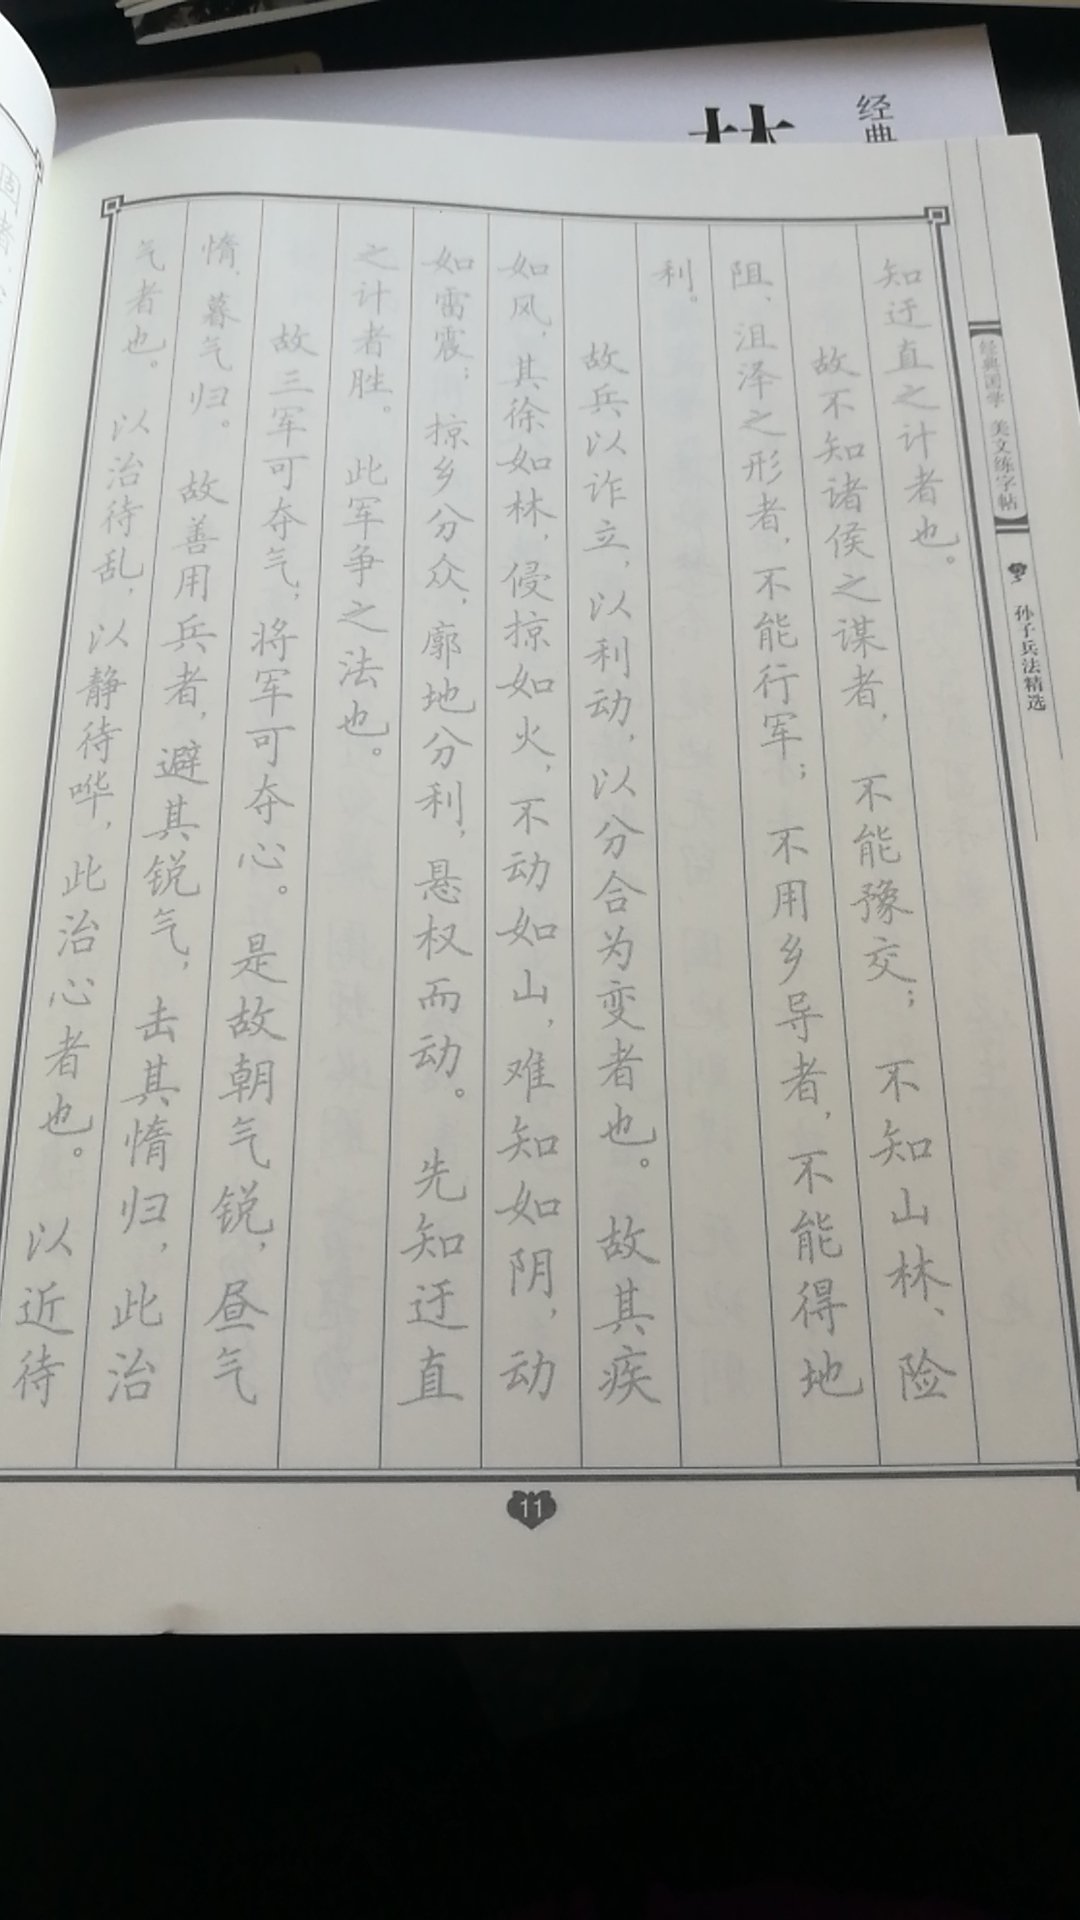 经典
经典国学 美文练字帖
孙子兵法精选
知迂直之计者也。
故不知诸侯之谋者，不能豫交；不知山林、险
阻、沮泽之形者，不能行军；不用乡导者，不能得地
利。
故兵以诈立，以利动，以分合为变者也。故其疾
如风，其徐如林，侵掠如火，不动如山，难知如阴，动
如雷震；掠乡分众，廓地分利，悬权而动。先知迂直
之计者胜。此军争之法也。
故三军可夺气，将军可夺心。是故朝气锐，昼气
惰，暮气归。故善用兵者，避其锐气，击其惰归，此治
气者也。以治待乱，以静待哗，此治心者也。以近待
11